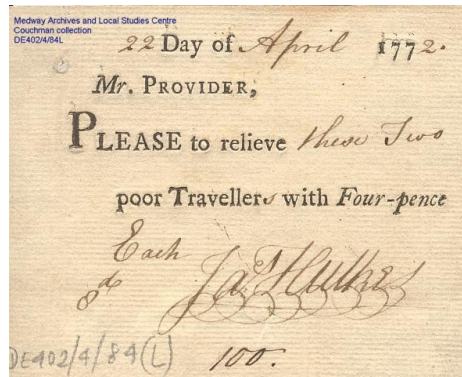 Medway Archives and Local Studies Centre
Couchman collection
DE402/4/84L
22 Day of April 1772.
Mr. PROVIDER,
PLEASE to relieve these Two
poor Travellers with Four-pence
Each
8d Jas Hulkes
DE402/4/84(L) 100.